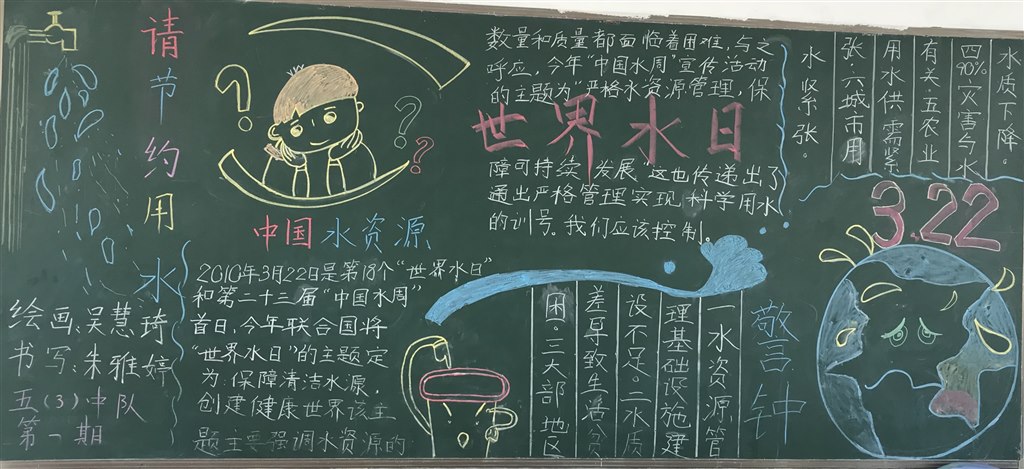 请节约用水
绘画:吴慧琦
书写:朱雅婷
五(3)中队
第一期
中国水资源
2010年3月22日是第18个“世界水日”
和第二十三届“中国水周”
首日,今年联合国将
“世界水日”的主题定
为:保障清洁水源,
创建健康世界该主
题主要强调水资源的
数量和质量都面临着困难,与之
呼应,今年“中国水周”宣传活动
的主题为“严格水资源管理,保
世界水日
障可持续发展”这也传递出了
通出严格管理实现科学用水
的训号。我们应该控制。
3.22
警钟
一水资源管
理基础设施建
设不足。二水质
差导致生活贫
困。三大部地区
水质下降。
四90%灾害与水
有关。五农业
用水供需紧
张六城市用
水紧张。